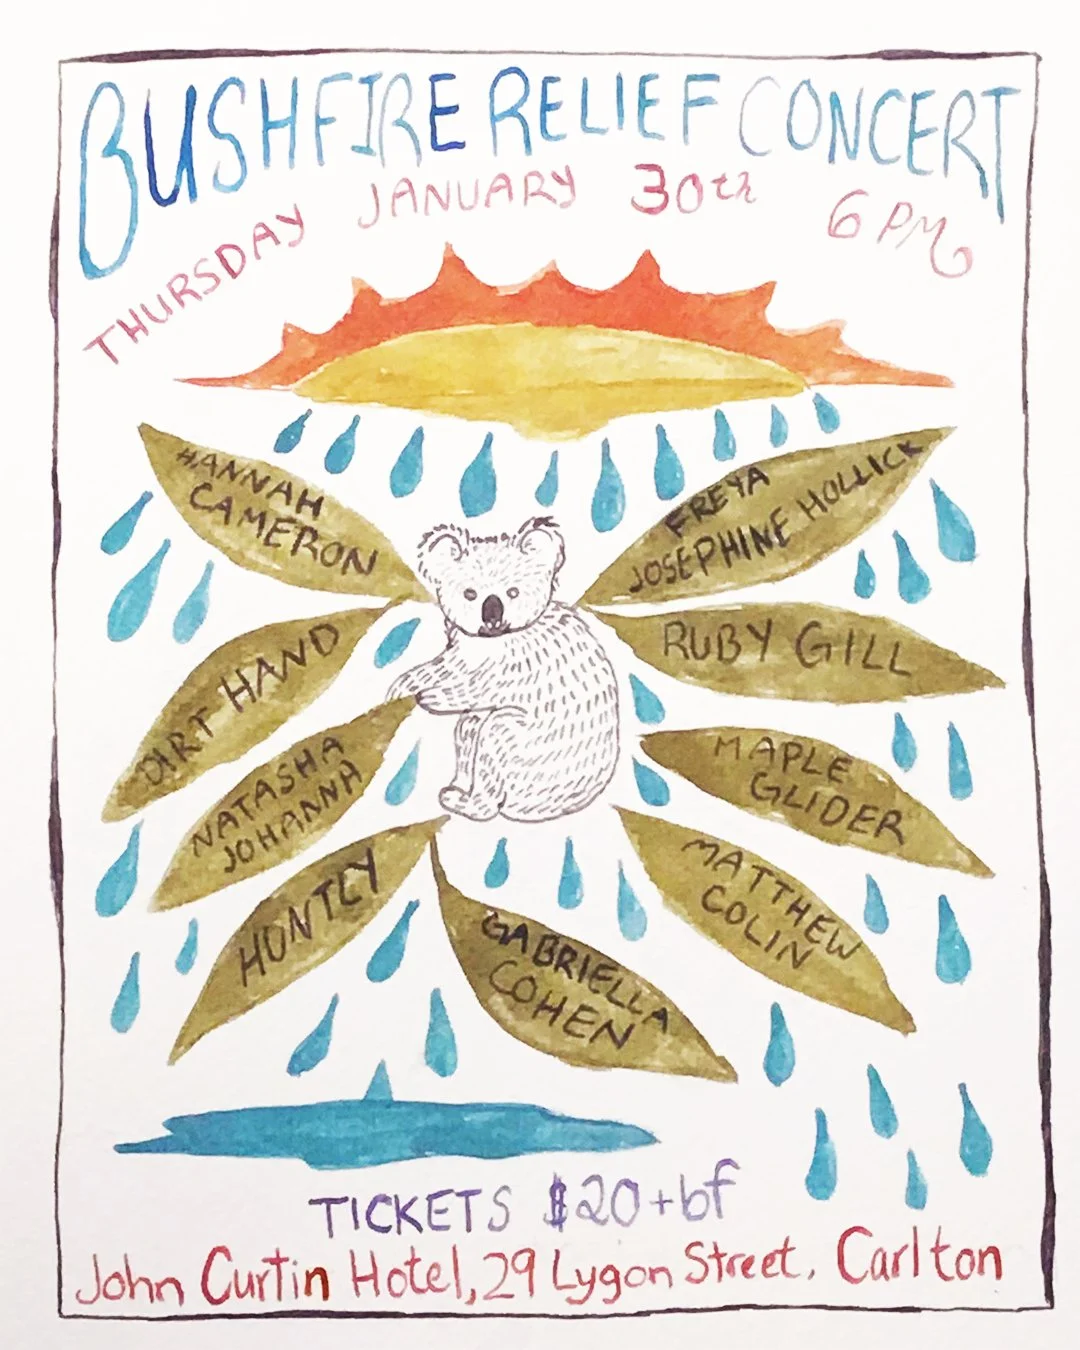 BUSHFIRE RELIEF CONCERT
THURSDAY JANUARY 30TH 6PM
HANNAH
CAMERON
FREYA
JOSEPHINE HOLLICK
DIRT HAND
RUBY GILL
NATASHA
JOHANNA
MAPLE
GLIDER
HUNTLY
MATTHEW
COLIN
GABRIELLA
COHEN
TICKETS $20+bf
John Curtin Hotel, 29 Lygon Street, Carlton